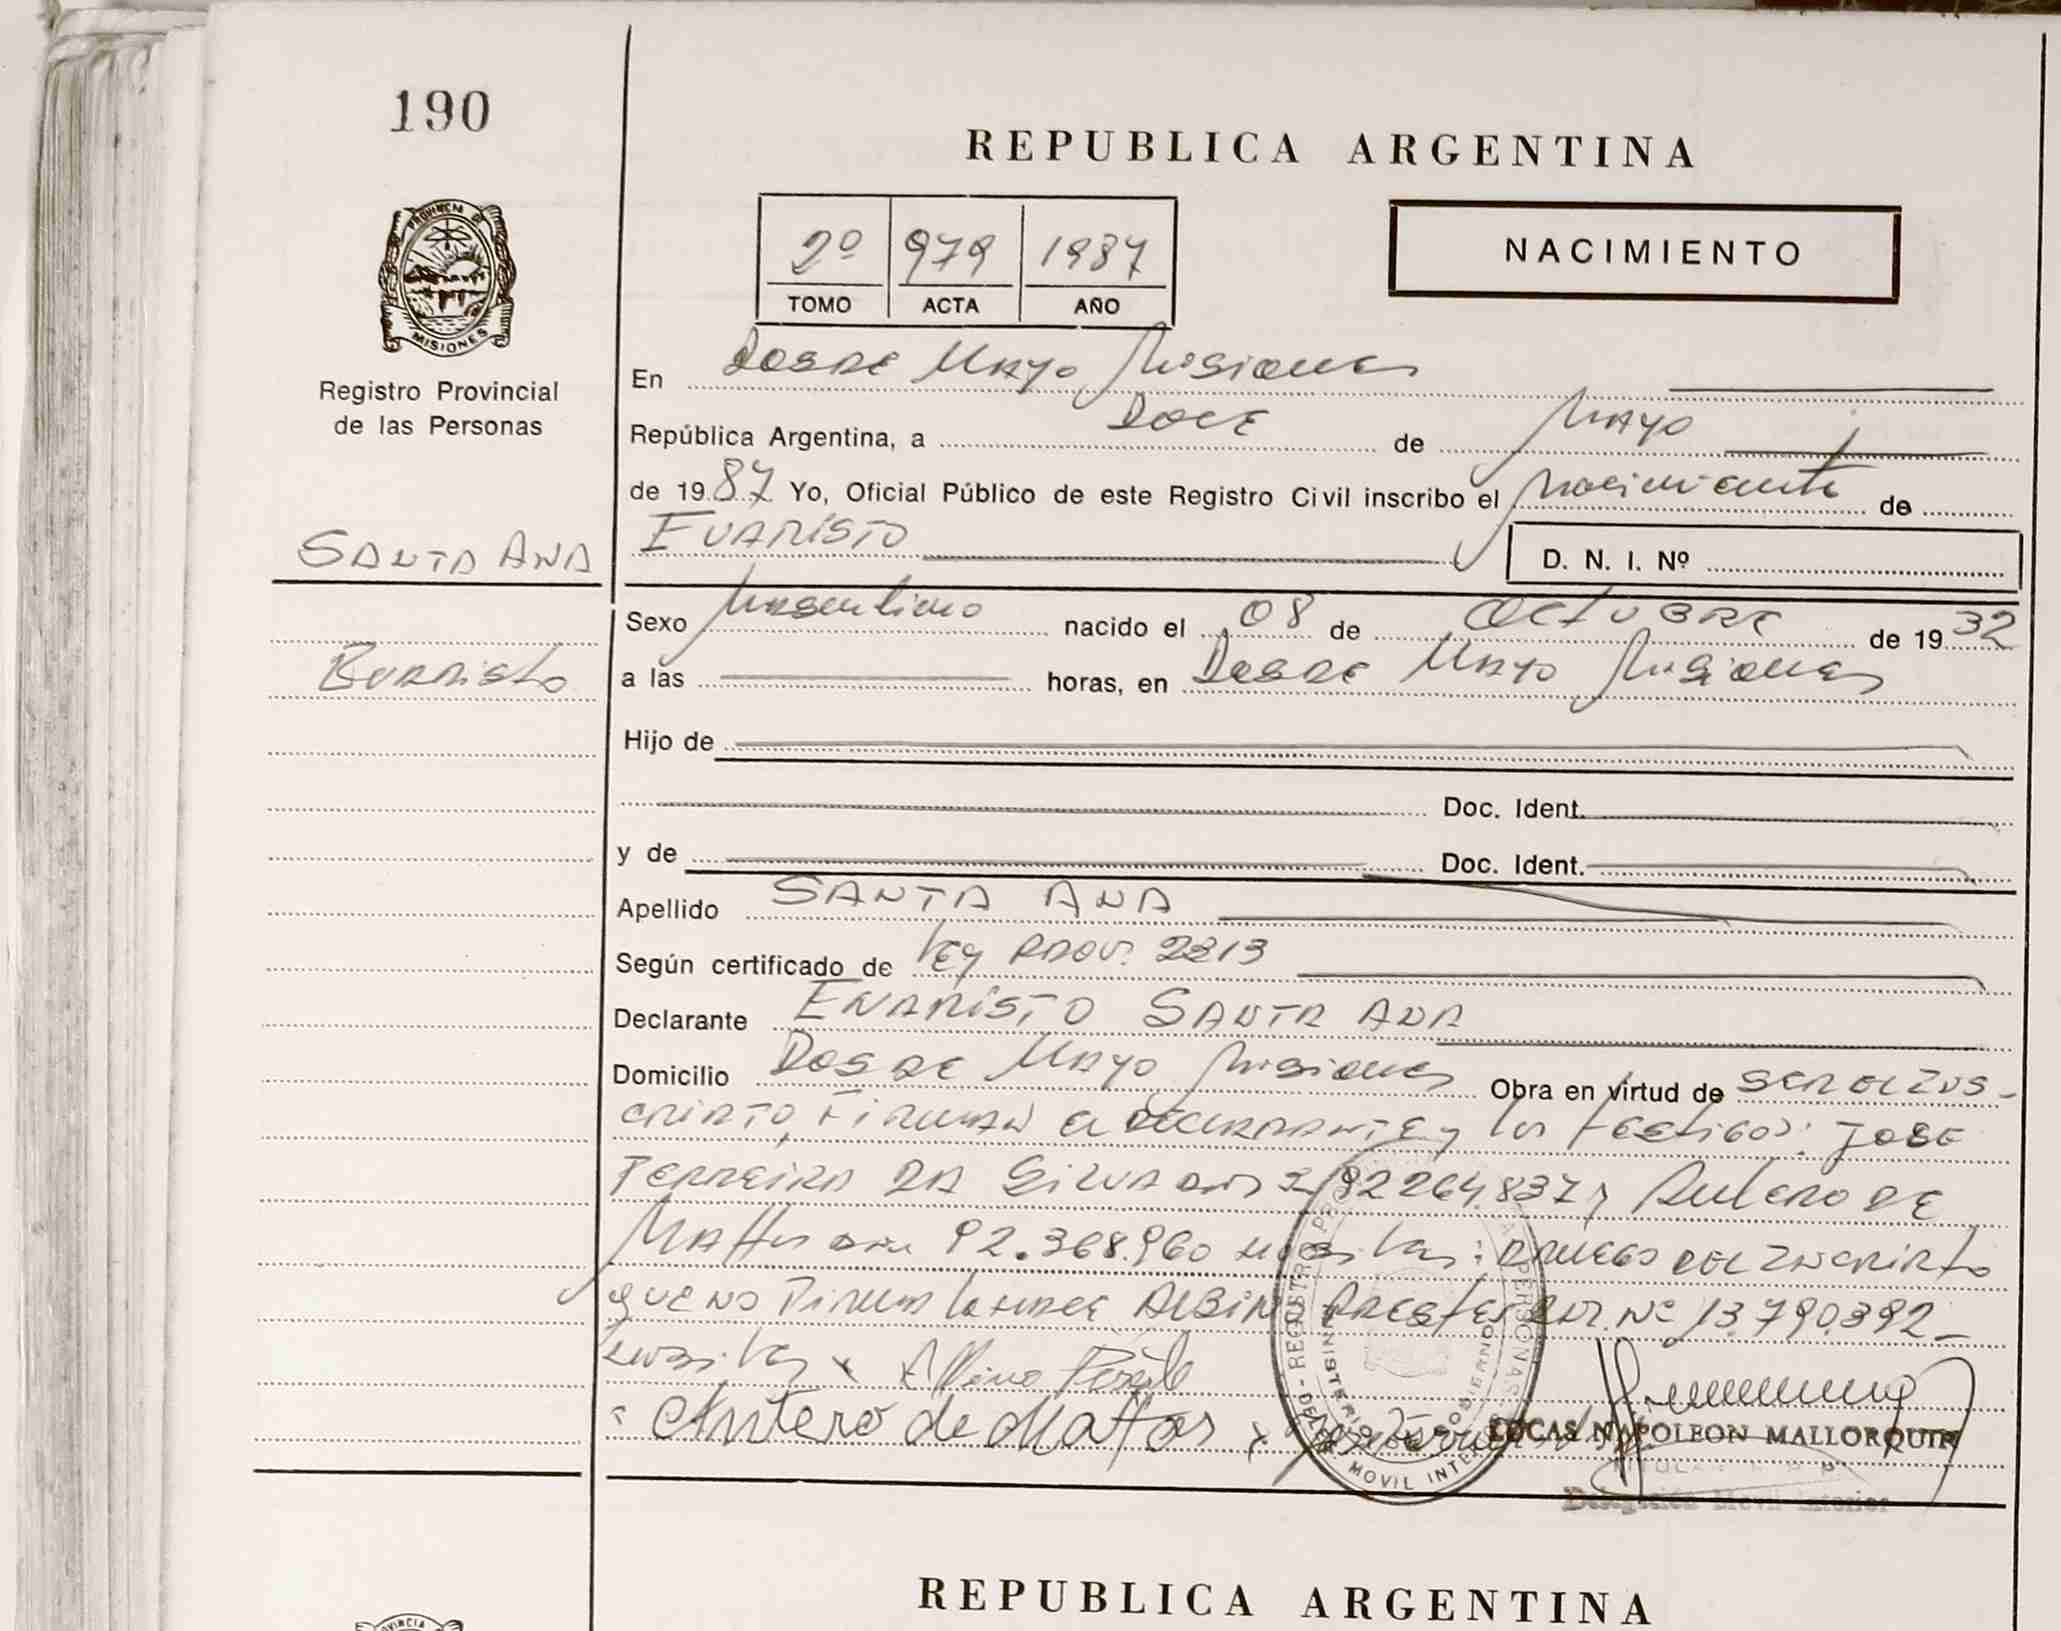 190
REPUBLICA ARGENTINA
PROVINCIA DE
MISIONES
2º 979 1987
TOMO ACTA AÑO
NACIMIENTO
Registro Provincial
de las Personas
En Dos de Mayo Misiones
República Argentina, a Doce de Mayo
de 1987 Yo, Oficial Público de este Registro Civil inscribo el Nacimiento de
SANTA ANA
Evaristo
EVARISTO
D. N. I. Nº
Sexo Masculino nacido el 08 de OCTUBRE de 1932
a las horas, en Dos de Mayo Misiones
Hijo de
Doc. Ident.
y de Doc. Ident.
Apellido SANTA ANA
Según certificado de Ley Prov. 2213
Declarante EVARISTO SANTA ANA
Domicilio Dos de Mayo Misiones Obra en virtud de SER EL INS-
CRIPTO, Firman el declarante y los testigos: JOSE
FERREIRA DA SILVA DNI 92264.837 y Antero DE
Mattos DNI 92.368.960 A RUEGO DEL Inscripto
que no Firma lo hace ALBINO DNI. Nº 13.790.392-
Albino
Antero de Mattos x
LUCAS NAPOLEON MALLORQUIN
Delegación Movil Interior
REPUBLICA ARGENTINA